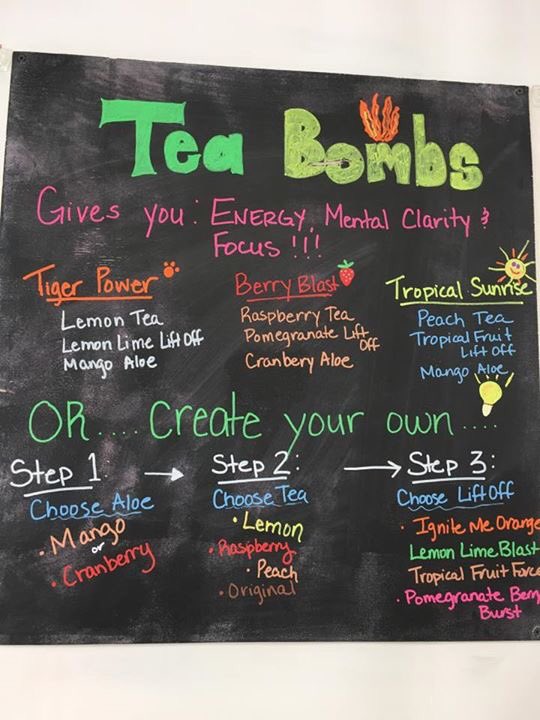 Tea Bombs
Gives you: ENERGY, Mental Clarity &
Focus!!!
Tiger Power
Lemon Tea
Lemon Lime Lift Off
Mango Aloe
Berry Blast
Raspberry Tea
Pomegranate Lift
Off
Cranbery Aloe
Tropical Sunrise
Peach Tea
Tropical Fruit
Lift Off
Mango Aloe
OR.... Create your own.....
Step 1:
Choose Aloe
• Mango
or
• Cranberry
Step 2:
Choose Tea
• Lemon
• Raspberry
• Peach
• Original
Step 3:
Choose Lift Off
• Ignite Me Orange
Lemon Lime Blast
Tropical Fruit Force
• Pomegranate Berry
Burst